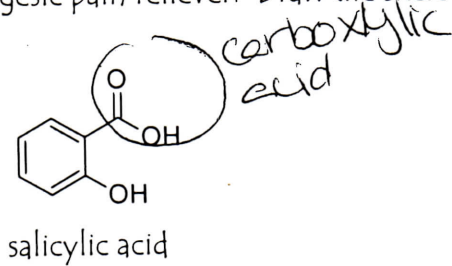 carboxylic
acid
O
OH
OH
salicylic acid